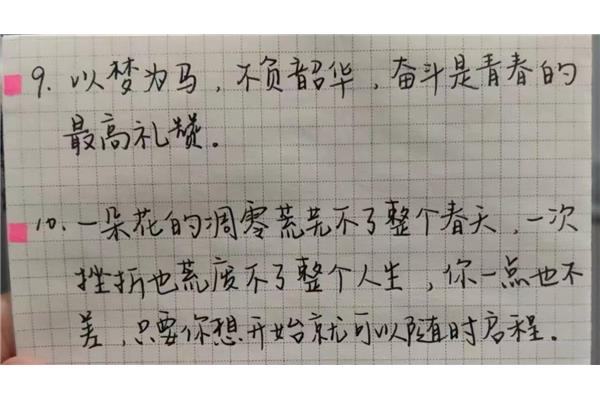 9. 以梦为马，不负韶华，奋斗是青春的
最高礼赞。
10. 一朵花的凋零荒芜不了整个春天，一次
挫折也荒废不了整个人生，你一点也不
差，只要你想开始就可以随时启程。